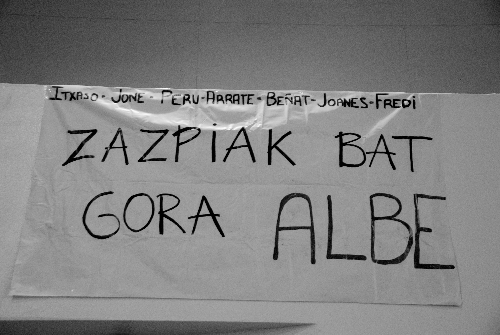 ITXASO - JONE - PERU - ARRATE - BEÑAT - JOANES - FREDI
ZAZPIAK BAT
GORA ALBE